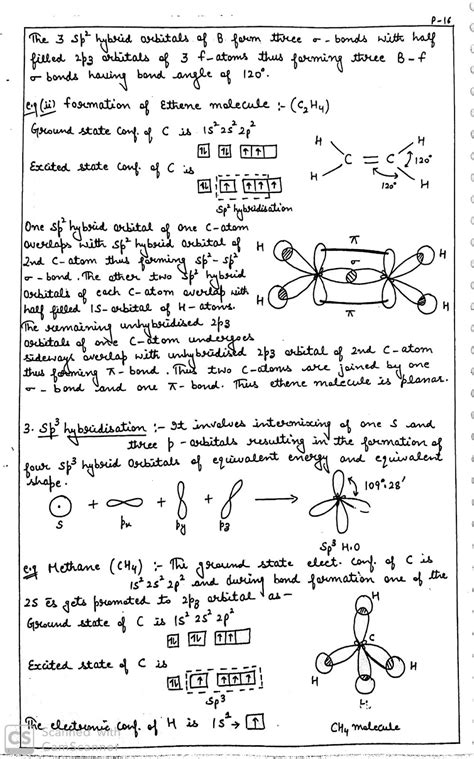 P-16
The 3 sp² hybrid orbitals of B form three σ-bonds with half
filled 2p₃ orbitals of 3 f-atoms thus forming three B-f
σ bonds having bond angle of 120°.
e.g (ii) Formation of Ethene molecule :- (C₂H₄)
Ground state conf. of C is 1S² 2S² 2p²
⇅ ⇅ ↑ ↑
Excited state conf. of C is
⇅ ↑ ↑ ↑ ↑
Sp² hybridisation
H H
C = C
H H
120°
120°
One sp² hybrid orbital of one C-atom
overlaps with sp² hybrid orbital of
2nd C-atom thus forming sp²-sp²
σ-bond. The other two sp² hybrid
orbitals of each C-atom overlap with
half filled 1S-orbital of H-atoms.
The remaining unhybridised 2p₃
orbitals of one C-atom undergoes
sideways overlap with unhybridised 2p₃ orbital of 2nd C-atom
thus forming π-bond. Thus two C-atoms are joined by one
σ-bond and one π-bond. Thus ethene molecule is planar.
H π H
σ
H π H
3. Sp³ hybridisation :- It involves intermixing of one S and
three p-orbitals resulting in the formation of
four sp³ hybrid orbitals of equivalent energy and equivalent
shape.
+ + + →
109°.28'
S px py p₃
Sp³ H.O
e.g Methane (CH₄) :- The ground state elect. conf. of C is
1S² 2S² 2p² and during bond formation one of the
2S es gets promoted to 2p₃ orbital as-
Ground state of C is 1S² 2S² 2p²
⇅ ⇅ ↑ ↑
Excited state of C is
⇅ ↑ ↑ ↑ ↑
Sp³
H
C
H H
H
The electronic conf. of H is 1S¹ → ↑
CH₄ molecule
CS Scanned with
CamScanner